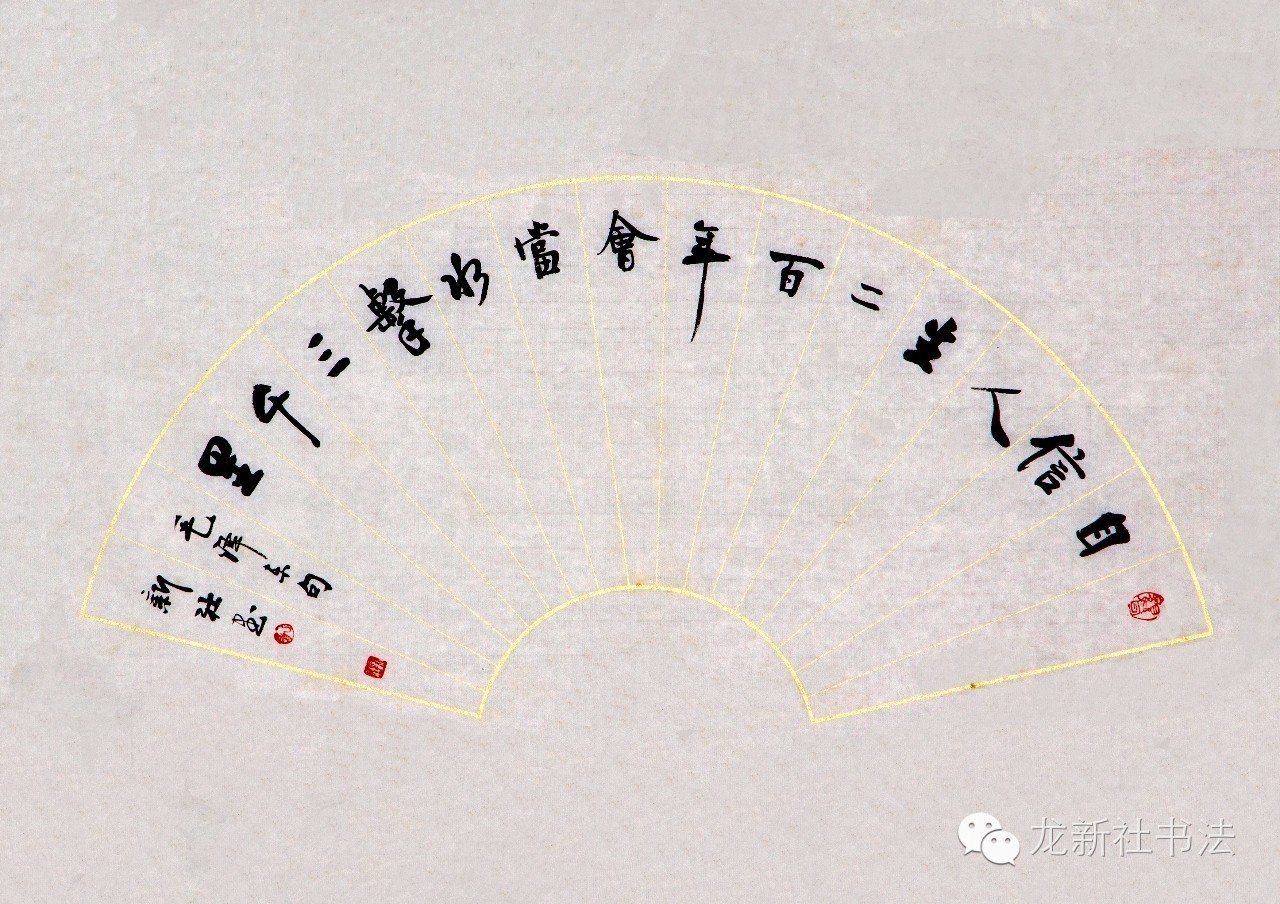 自信人生二百年會當水擊三千里
毛澤東句
新社書
龙新社书法